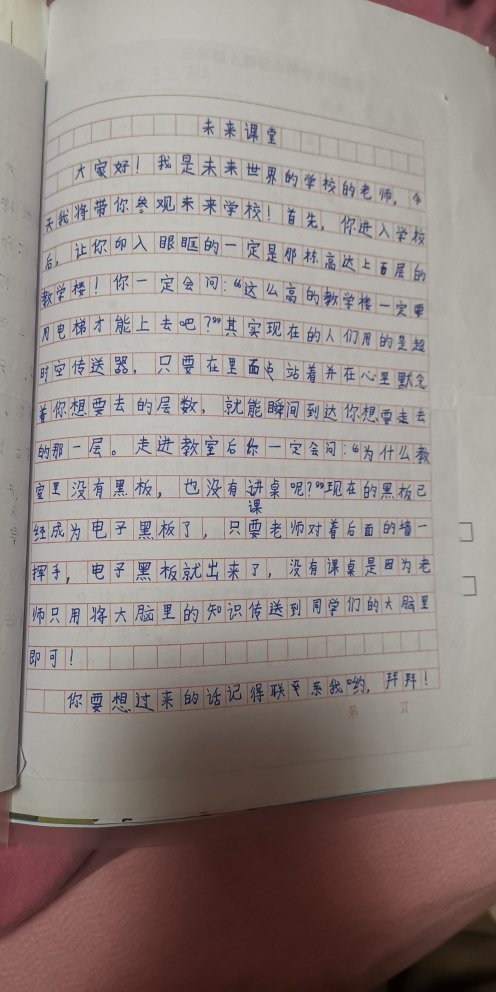 未来课堂
大家好！我是未来世界的学校的老师，今
天我将带你参观未来学校！首先，你进入学校
后，让你印入眼眶的一定是那栋高达上百层的
教学楼！你一定会问：“这么高的教学楼一定要
用电梯才能上去吧？”其实现在的人们用的是超
时空传送器，只要在里面站着并在心里默念
着你想要去的层数，就能瞬间到达你想要走去
的那一层。走进教室后你一定会问：“为什么教
室里没有黑板，也没有讲桌呢？”现在的黑板已
课
经成为电子黑板了，只要老师对着后面的墙一
挥手，电子黑板就出来了，没有课桌是因为老
师只用将大脑里的知识传送到同学们的大脑里
即可！
你要想过来的话记得联系我哟，拜拜！